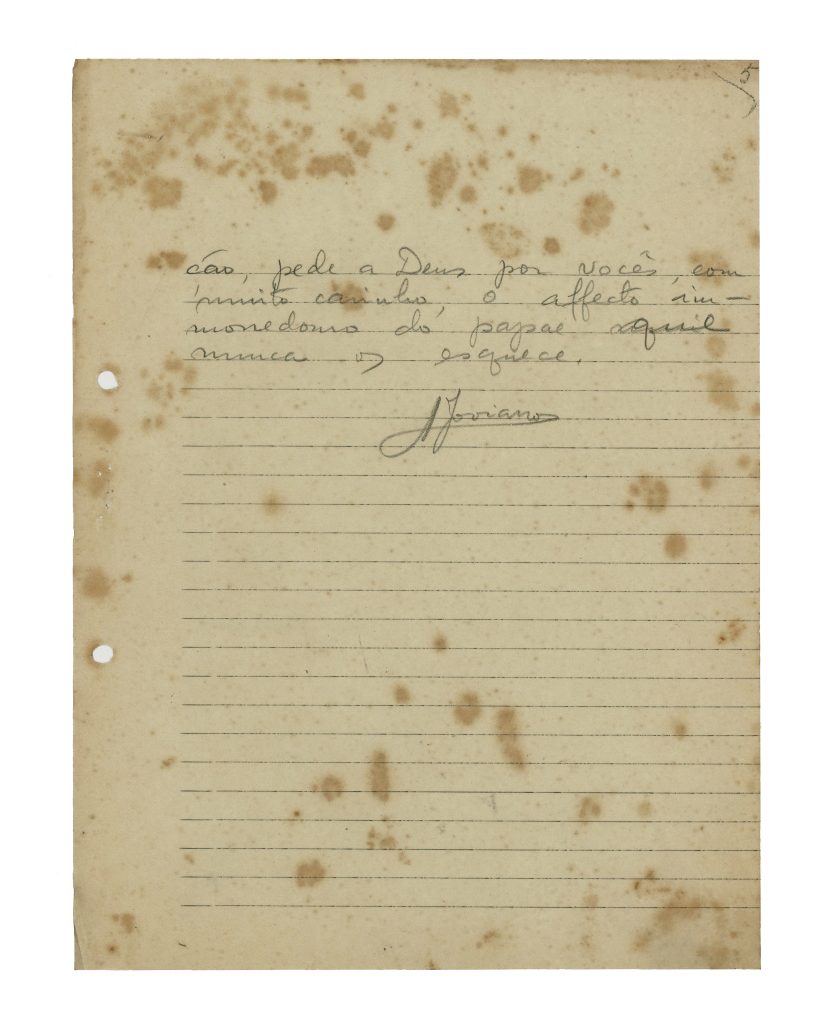 5
ção, pede a Deus por vocês, com
muito carinho, o affecto im-
morredouro do papae que
nunca os esquece.
AJoviano